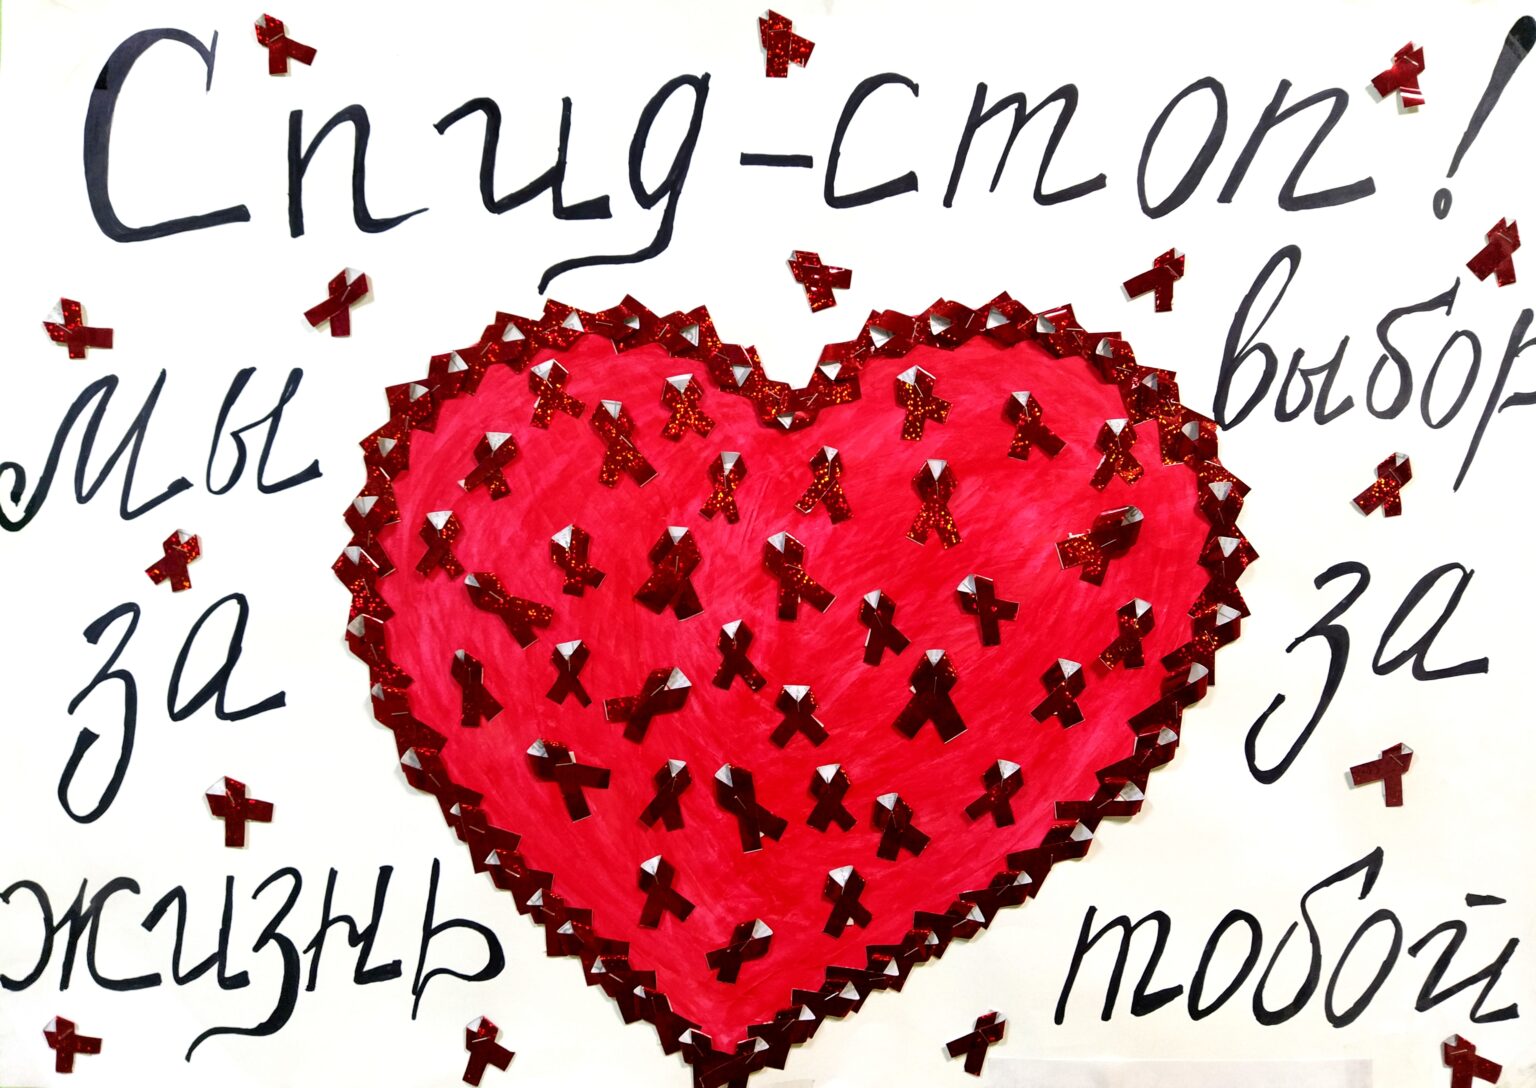 Спид-стоп!
мы
за
жизнь
выбор
за
тобой